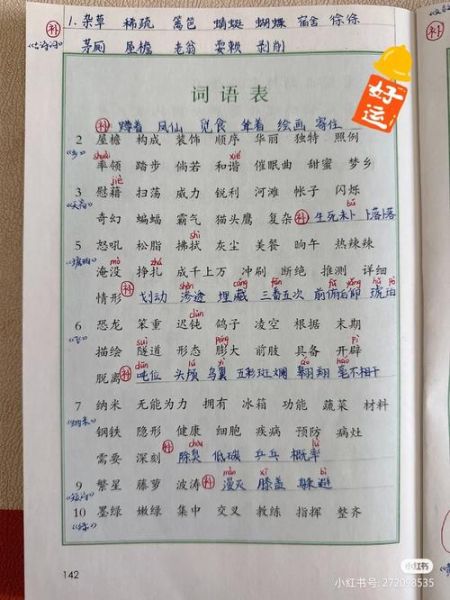 补 1. 杂草 稀疏 篱笆 蜻蜓 蝴蝶 宿舍 徐徐
茅厕 屋檐 老翁 耍赖 剥削
好运
词语表
补 蹲着 凤仙 觅食 耸着 绘画 寄住
2 屋檐 构成 装饰 顺序 华丽 独特 照例
shuài xié
率领 踏步 倘若 和谐 催眠曲 甜蜜 梦乡
jiè
3 慰藉 扫荡 威力 锐利 河滩 帐子 闪烁
bǔ
奇幻 蝙蝠 霸气 猫头鹰 复杂 补 生死未卜
shì
5 怒吼 松脂 拂拭 灰尘 美餐 晌午 热辣辣
mò zhá
淹没 挣扎 成千上万 冲刷 断绝 推测 详细
情形 补 划动 渗透 埋藏 三番五次 前俯后仰 琥珀
dùn
6 恐龙 笨重 迟钝 鸽子 凌空 根据 末期
suì péng pì
描绘 隧道 形态 膨大 前肢 具备 开辟
脱离 补 吨位 头颅 鸟翼 五彩斑斓 翱翔 毫不相干
7 纳米 无能为力 拥有 冰箱 功能 蔬菜 材料
钢铁 隐形 健康 细胞 疾病 预防 病灶
chòu lǜ
需要 深刻 补 除臭 低碳 乒乓 概率
màn xī bì
9 繁星 藤萝 波涛 补 漫灭 膝盖 躲避
10 墨绿 嫩绿 集中 交叉 教练 指挥 整齐
142
小红书
小红书号: 272098535